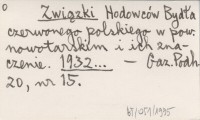 Związki Hodowców Bydła
czerwonego polskiego w pow.
nowotarskim i ich zna-
czenie. 1932... — Gaz. Podh.
20, nr 15.